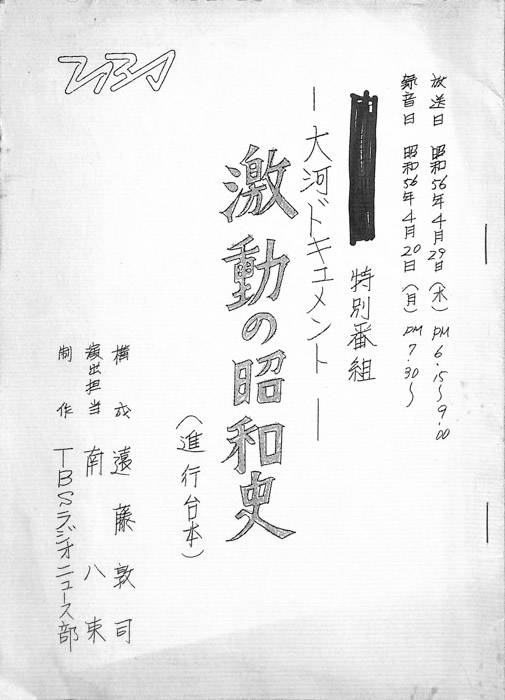 放送日 昭和56年4月29日(水) PM 6.15〜9.00
録音日 昭和56年4月20日(月) PM 7.30〜
特別番組
―大河ドキュメント―
激動の昭和史
(進行台本)
構成 遠藤敦司
演出担当 南八東
制作 TBSラジオニュース部
TBS